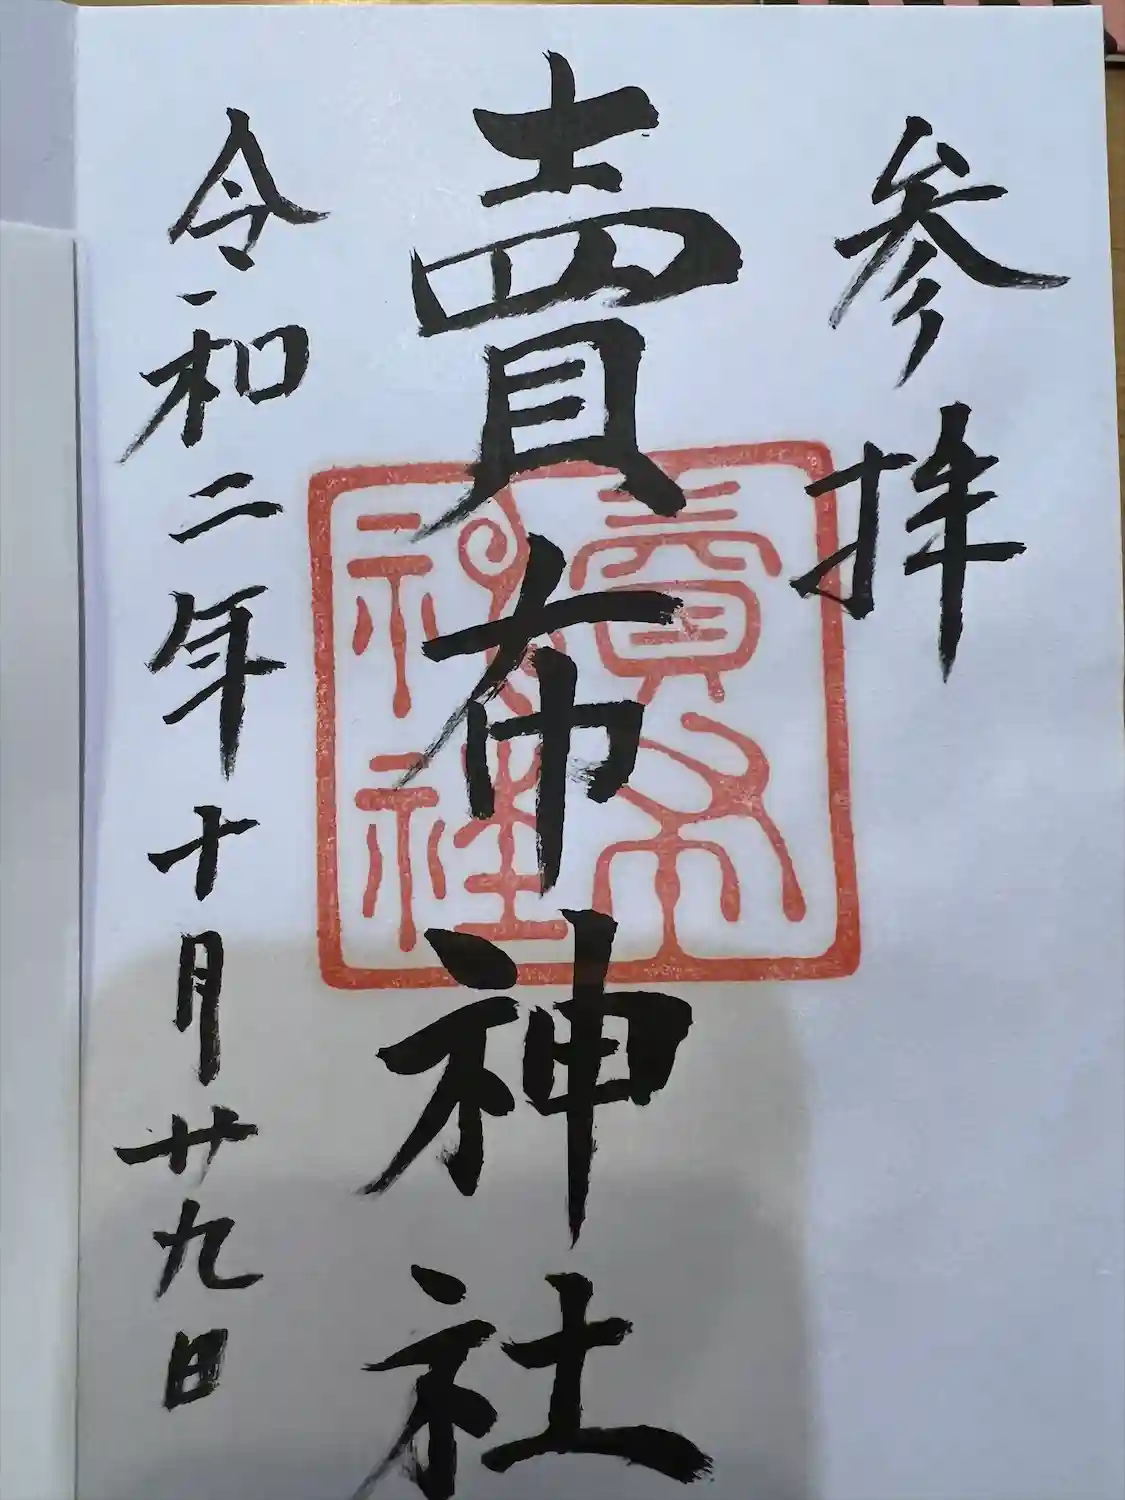 参拝
賣布神社
賣布神社
令和二年十月廿九日